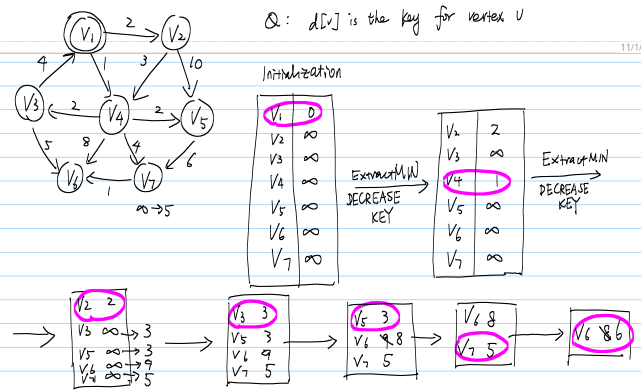 Q: d[v] is the key for vertex v
11/1
V1 2 V2
4 1 3 10
V3 2 V4 2 V5
5 8 4 6
V6 1 V7
∞→5
Initialization
V1 0
V2 ∞
V3 ∞
V4 ∞
V5 ∞
V6 ∞
V7 ∞
ExtractMIN
DECREASE
KEY
V2 2
V3 ∞
V4 1
V5 ∞
V6 ∞
V7 ∞
ExtractMIN
DECREASE
KEY
V2 2
V3 ∞→3
V5 ∞→3
V6 ∞→9
V7 ∞→5
V3 3
V5 3
V6 9
V7 5
V5 3
V6 9 8
V7 5
V6 8
V7 5
V6 8 6